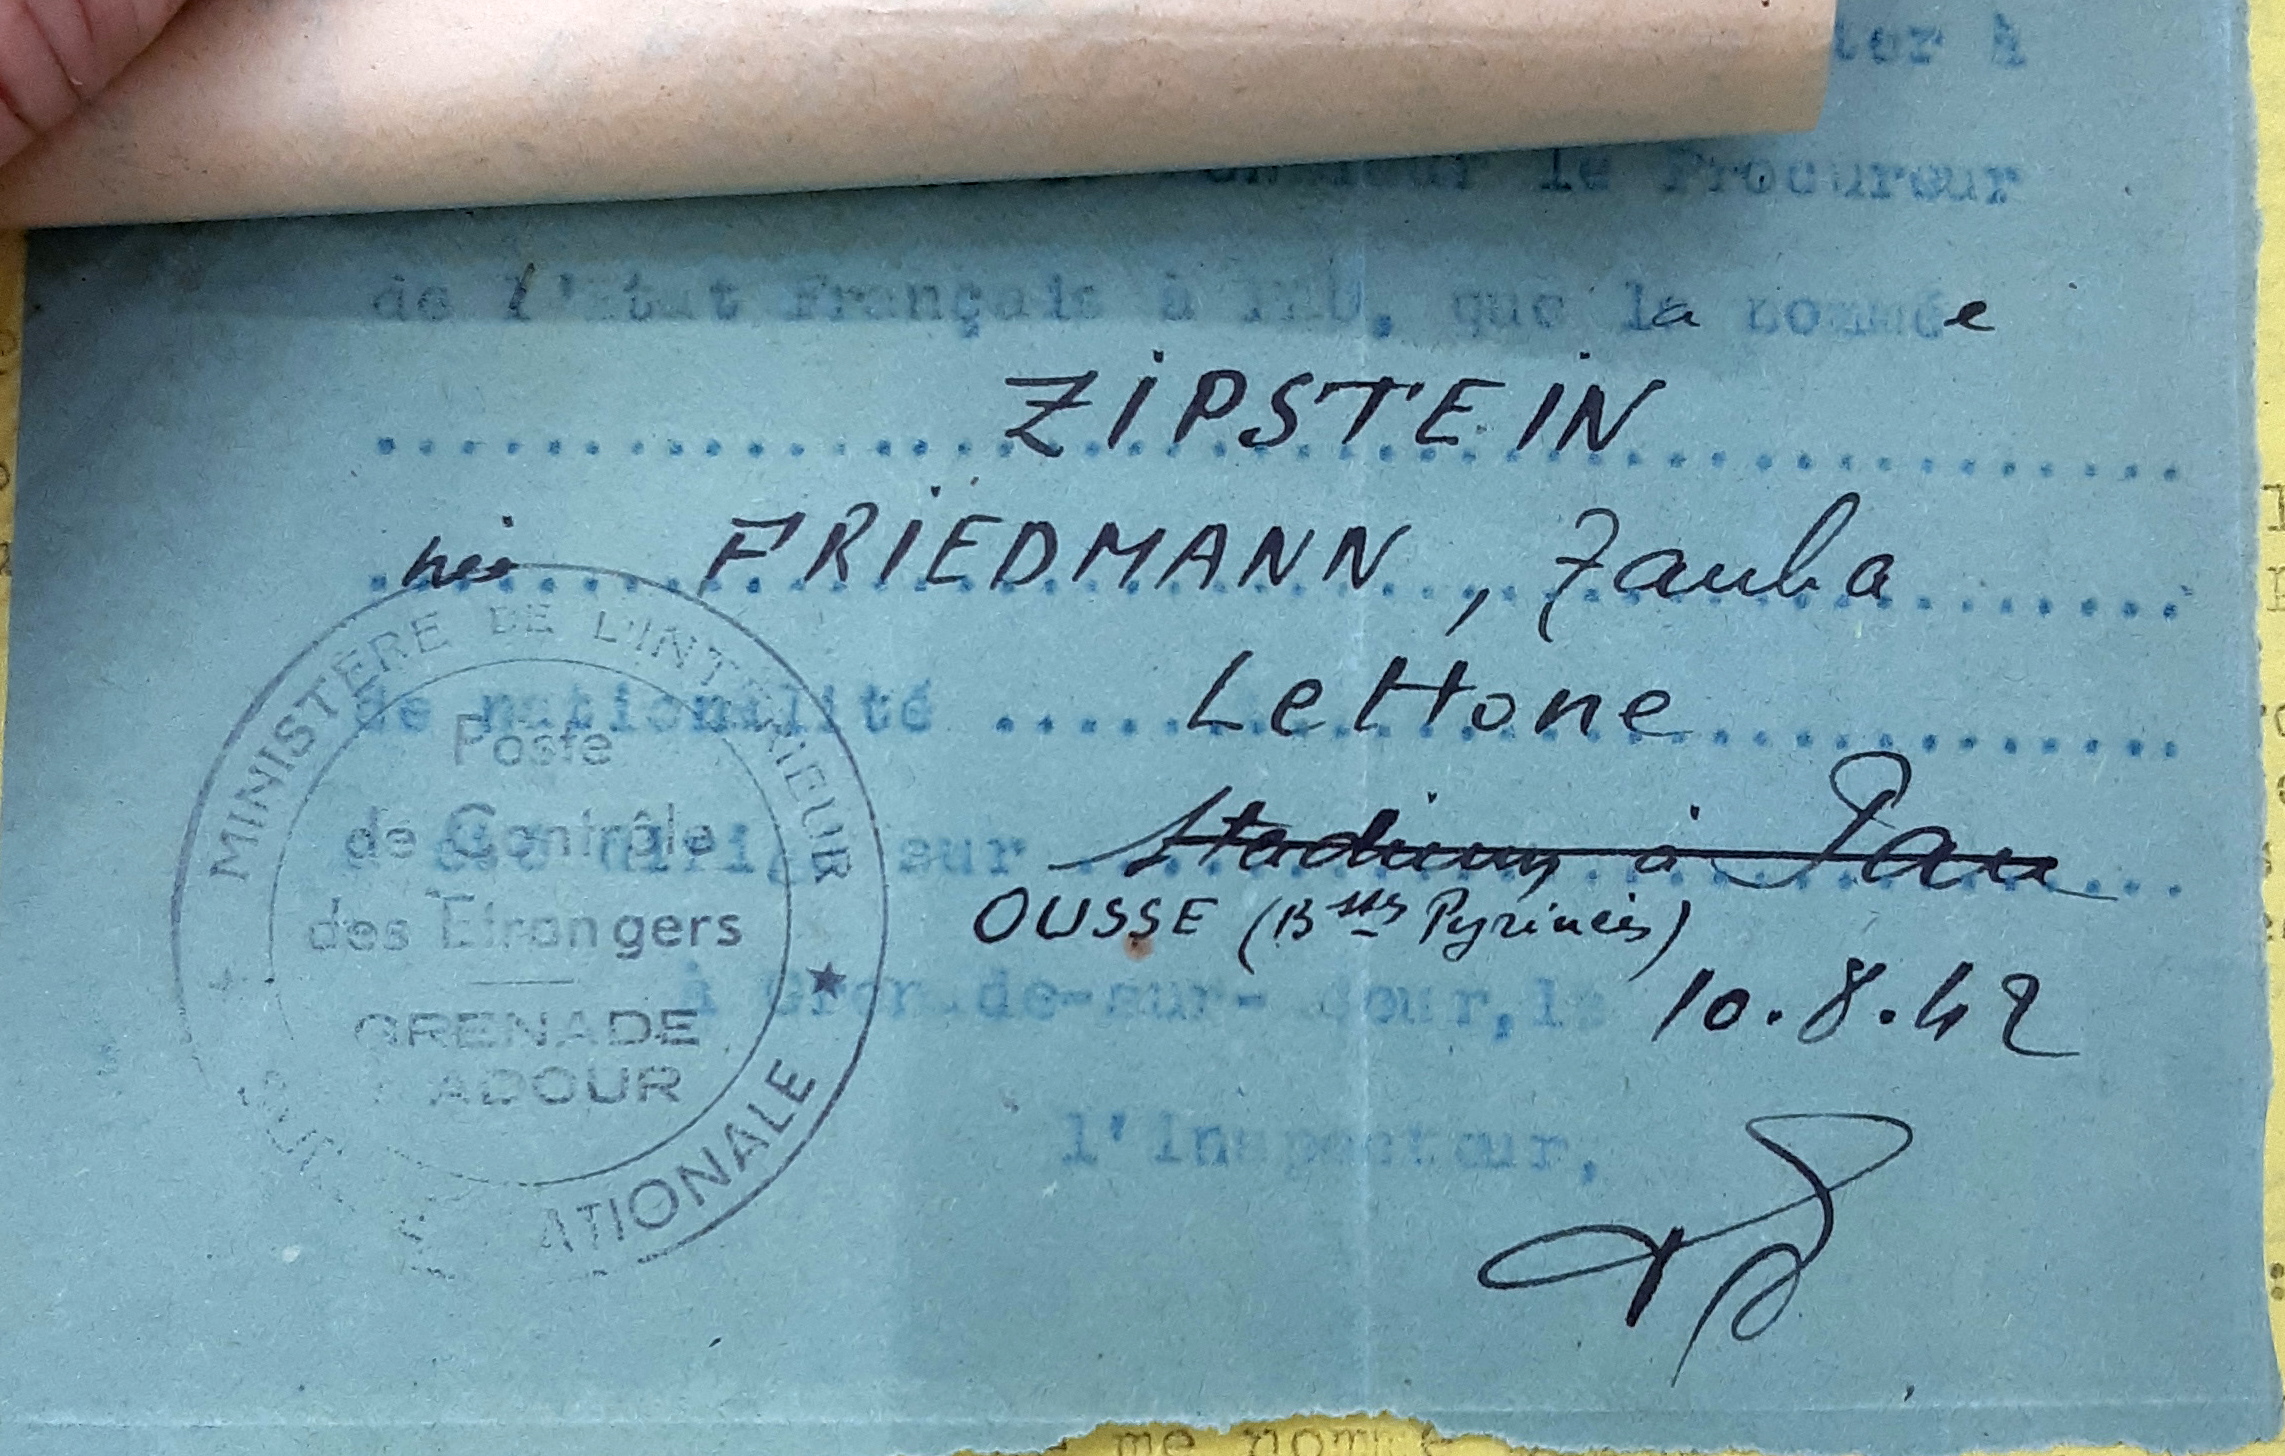 ter à
le Procureur
de l'Etat Français à PAU, que la nommée
ZIPSTEIN
née FRIEDMANN, Tauba
de nationalité Lettone
est dirigé sur Stadium à Pau
OUSSE (Bsses Pyrénées)
à Grenade-sur-Adour, le 10.8.42
l'Inspecteur,
MINISTÈRE DE L'INTERIEUR
Poste
de Contrôle
des Etrangers
GRENADE
ADOUR
ATIONALE
me nomme